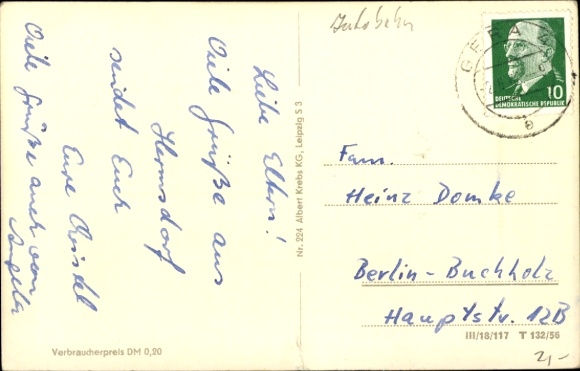 Liebe Eltern!
Viele Grüße aus
Hermsdorf
sendet Euch
Eure Christel
Viele Grüße auch von
Angela
Verbraucherpreis DM 0,20
Nr. 224 Albert Krebs KG, Leipzig S 3
Autobahn
GERA
e
10
DEUTSCHE
DEMOKRATISCHE REPUBLIK
Fam.
Heinz Domke
Berlin-Buchholz
Hauptstr. 12B
III/18/117 T 132/56
2,-